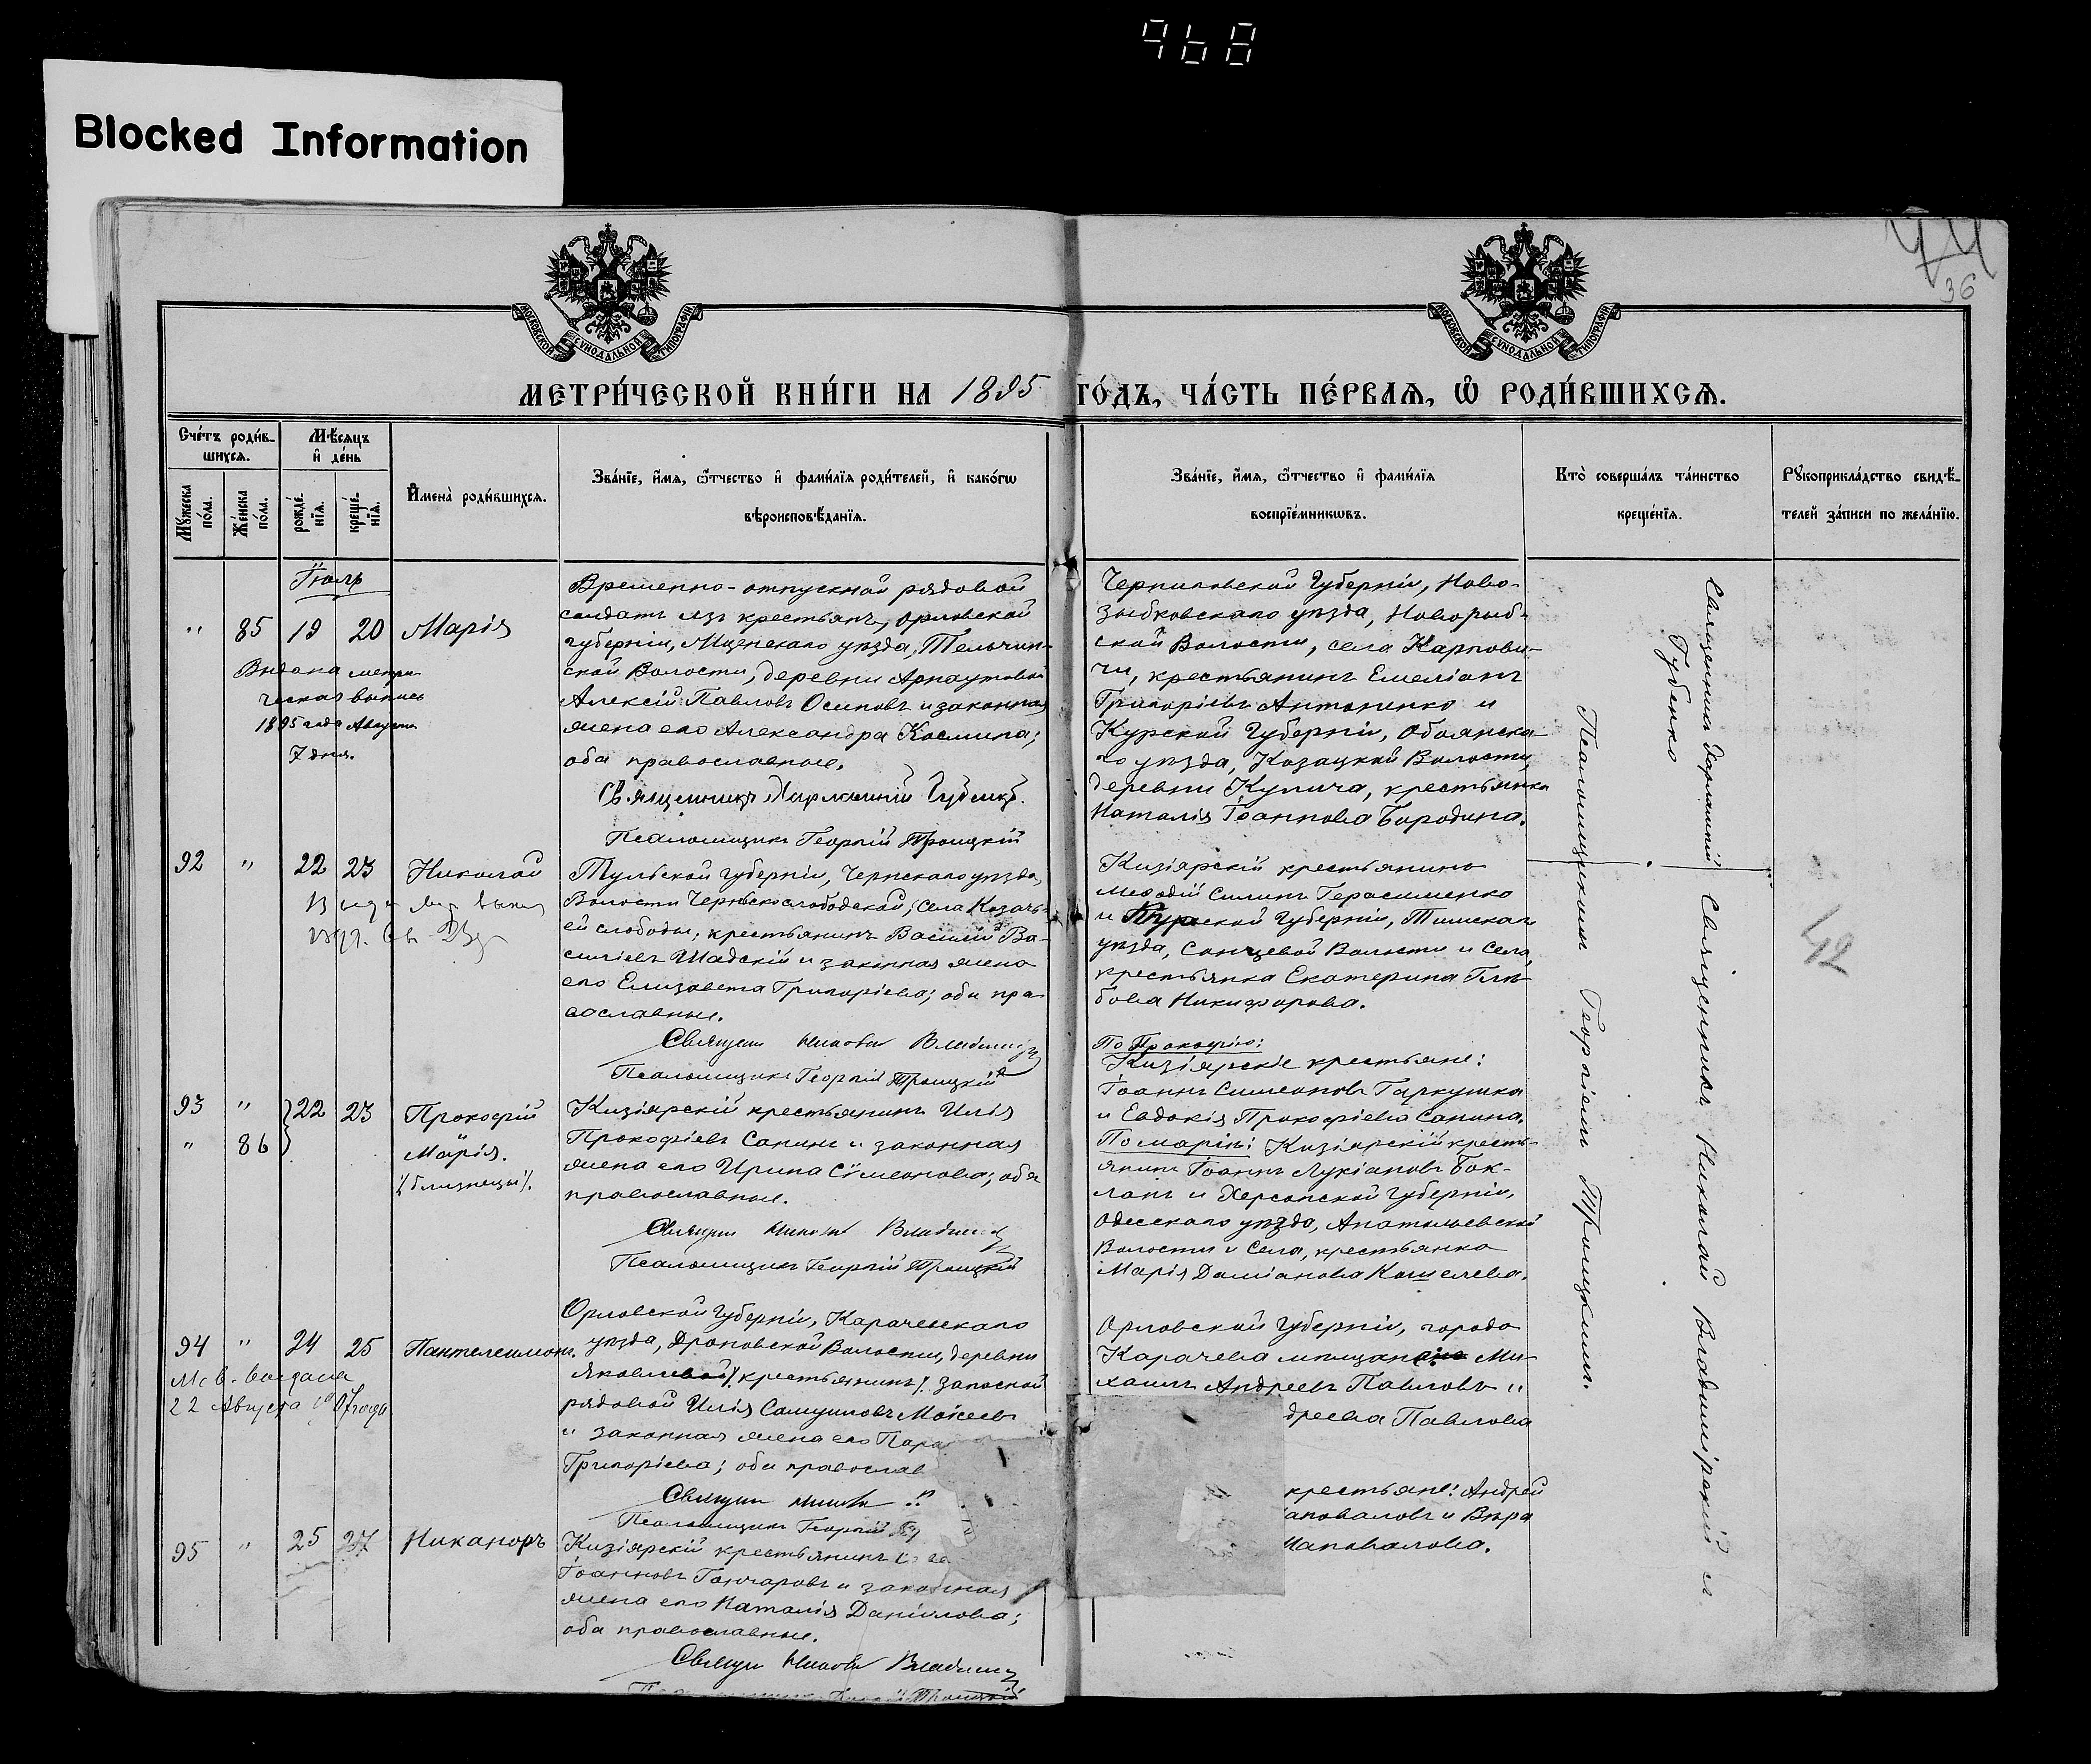 968
Blocked Information
44
36
МОСКОВСКОЙ СѴНОДАЛЬНОЙ ТИПОГРАФІИ
МОСКОВСКОЙ СѴНОДАЛЬНОЙ ТИПОГРАФІИ
МЕТРИ́ЧЕСКОЙ КНИ́ГИ НА 1895 ГО́ДЪ, ЧА́СТЬ ПЕ́РВАѦ, Ѡ҆ РОДИ́ВШИХСѦ.
Сче́тъ роди́в-
шихсѧ.
Мꙋ́жеска
по́ла.
Же́нска
по́ла.
Мѣ́сѧцъ
и҆ де́нь
рожде́-
нїѧ.
креще́-
нїѧ.
И҆мена̀ роди́вшихсѧ.
Зва́нїе, и҆́мѧ, ѻ҆́тчество и҆ фами́лїѧ роди́телей, и҆ како́гѡ
вѣроисповѣ́данїѧ.
Зва́нїе, и҆́мѧ, ѻ҆́тчество и҆ фами́лїѧ
воспрїе́мникѡвъ.
Кто̀ соверша́лъ та́инство
креще́нїѧ.
Рꙋкоприкла́дство свидѣ́-
телей за́писи по жела́нїю.
Іюль
" 85 19 20 Марія
Выдана метри-
ческая выпись
1895 года Августа
7 дня.
Временно-отпускной рядовой
солдатъ изъ крестьянъ, Орловской
губерніи, Мценскаго уѣзда, Тельчин-
ской Волости, деревни Арнаутовой
Алексій Павловъ Осиповъ и законная
жена его Александра Космина;
оба православные.
Священникъ Харлампій Губенко.
Псаломщикъ Георгій Троицкій
Черниговской Губерніи, Ново-
зыбковскаго уѣзда, Новорыб-
ской Волости, села Карпови-
чи, крестьянинъ Емеліанъ
Григоріевъ Антоненко и
Курской Губерніи, Обоянска-
го уѣзда, Козацкой Волости,
деревни Кунича, крестьянка
Наталія Іоаннова Бородина.
Священникъ Харлампій
Губенко
92 " 22 23 Николай
Тульской Губерніи, Чернскаго уѣзда,
Волости Чернскослободской, села Козачь-
ей слободы, крестьянинъ Василій Ва-
силіевъ Шадскій и законная жена
его Елизавета Григоріева; оба пра-
вославные.
Священн Никола Владимір
Псаломщикъ Георгій Троицкій
Кизіярскій крестьянинъ
Меѳодій Силинъ Герасименко
и Курской Губерніи, Тимскаго
уѣзда, Сонцевой Волости и Села,
крестьянка Екатерина Глѣ-
бова Никифорова.
42
93 " 22 23 Прокофій
" 86 Марія.
/близнецы/.
Кизіярскій крестьянинъ Илія
Прокофіевъ Сапинъ и законная
жена его Ирина Сѵмеонова; оба
православные.
Священн Никола Владимір
Псаломщикъ Георгій Троицкій
По Прокофію:
Кизіярскіе крестьяне:
Іоаннъ Симеоновъ Гаркушка
и Евдокія Прокофіева Сапина.
По Маріи: Кизіярскій кресть-
янинъ Іоаннъ Лукіановъ Бак-
ланъ и Херсонской Губерніи,
Одесскаго уѣзда, Анатольевской
Волости и Села, крестьянка
Марія Даміанова Кошелева.
94 " 24 25 Пантелеимонъ.
22 Августа
Орловской Губерніи, Карачевскаго
уѣзда, Дроновской Волости, деревни
Яковлевой /крестьянинъ/ запасной
рядовой Илія Самуиловъ Моисеевъ
и законная жена его Пара
Григоріева; оба православ
Священн Никола
Псаломщикъ Георгій
Орловской Губерніи, города
Карачева мѣщане Ми-
хаилъ Андреевъ Павловъ и
дреева Павлова
95 " 25 27 Никаноръ
Кизіярскій крестьянинъ
Іоанновъ Гончаровъ и законная
жена его Наталія Даніилова;
оба православные.
Священн Никола Владимір
крестьяне: Андрей
аповаловъ и Вѣра
Шаповалова.
Священникъ Николай Владимірскій и
Псаломщикомъ Георгіемъ Троицкимъ.